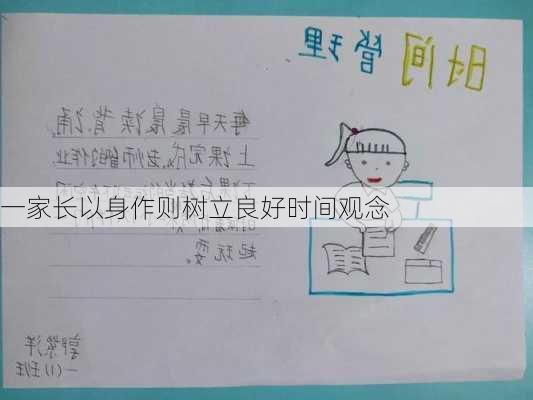 时间管理
每天早晨晨读背诵,
上课完成老师留的作业
一家长以身作则树立良好时间观念
起玩耍。
一(1)班